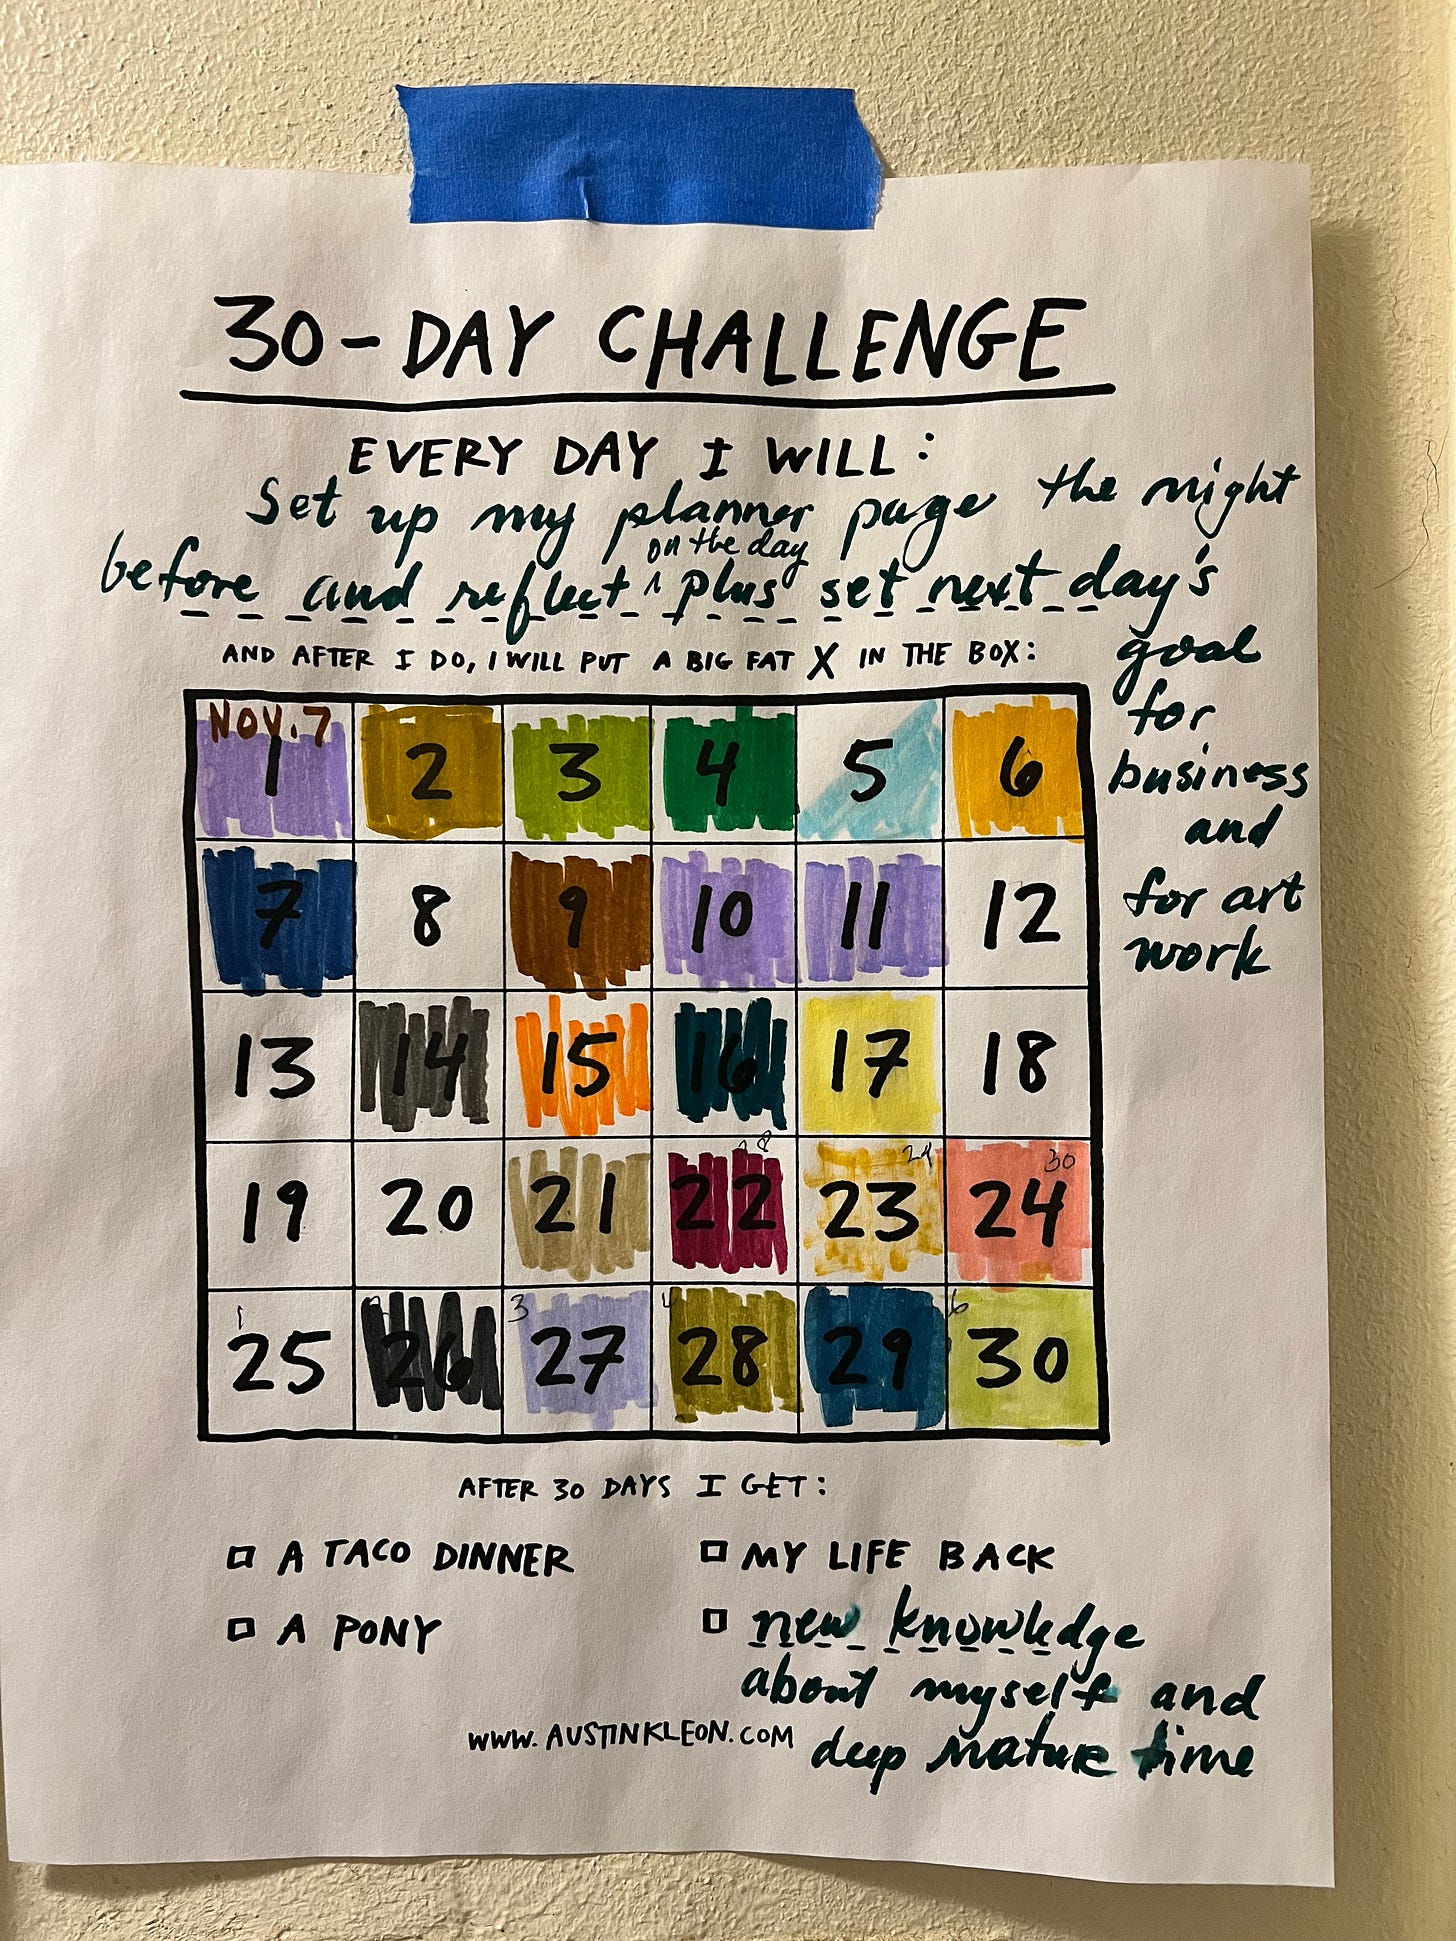 30-DAY CHALLENGE
EVERY DAY I WILL:
Set up my planner page the night
on the day
before and reflect ^ plus set next day's
goal
for
business
and
for art
work
AND AFTER I DO, I WILL PUT A BIG FAT X IN THE BOX:
NOV. 7
1 2 3 4 5 6
7 8 9 10 11 12
13 14 15 16 17 18
28 29 30
19 20 21 22 23 24
1 3 4 6
25 26 27 28 29 30
AFTER 30 DAYS I GET:
A TACO DINNER
MY LIFE BACK
A PONY
new knowledge
about myself and
deep nature time
WWW.AUSTINKLEON.COM